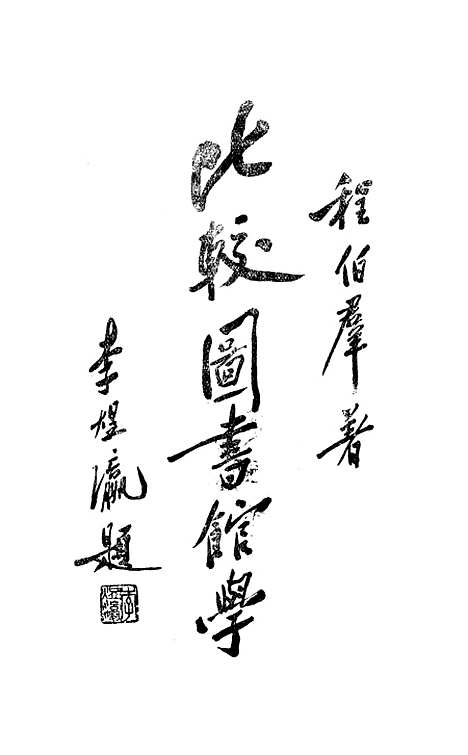 程伯羣著
比較圖書館學
李煜瀛題